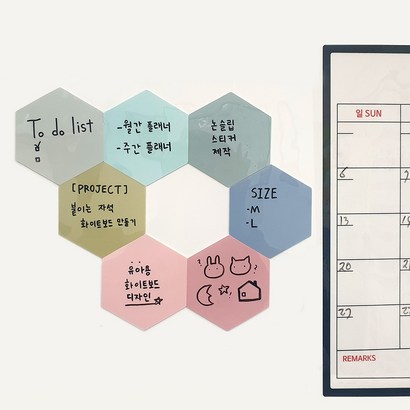 To do list
-월간 플래너
-주간 플래너
논슬립
스티커
제작
[PROJECT]
붙이는 자석
화이트보드 만들기
SIZE
-M
-L
유아용
화이트보드
디자인
일 SUN
6
13
20
27
REMARKS